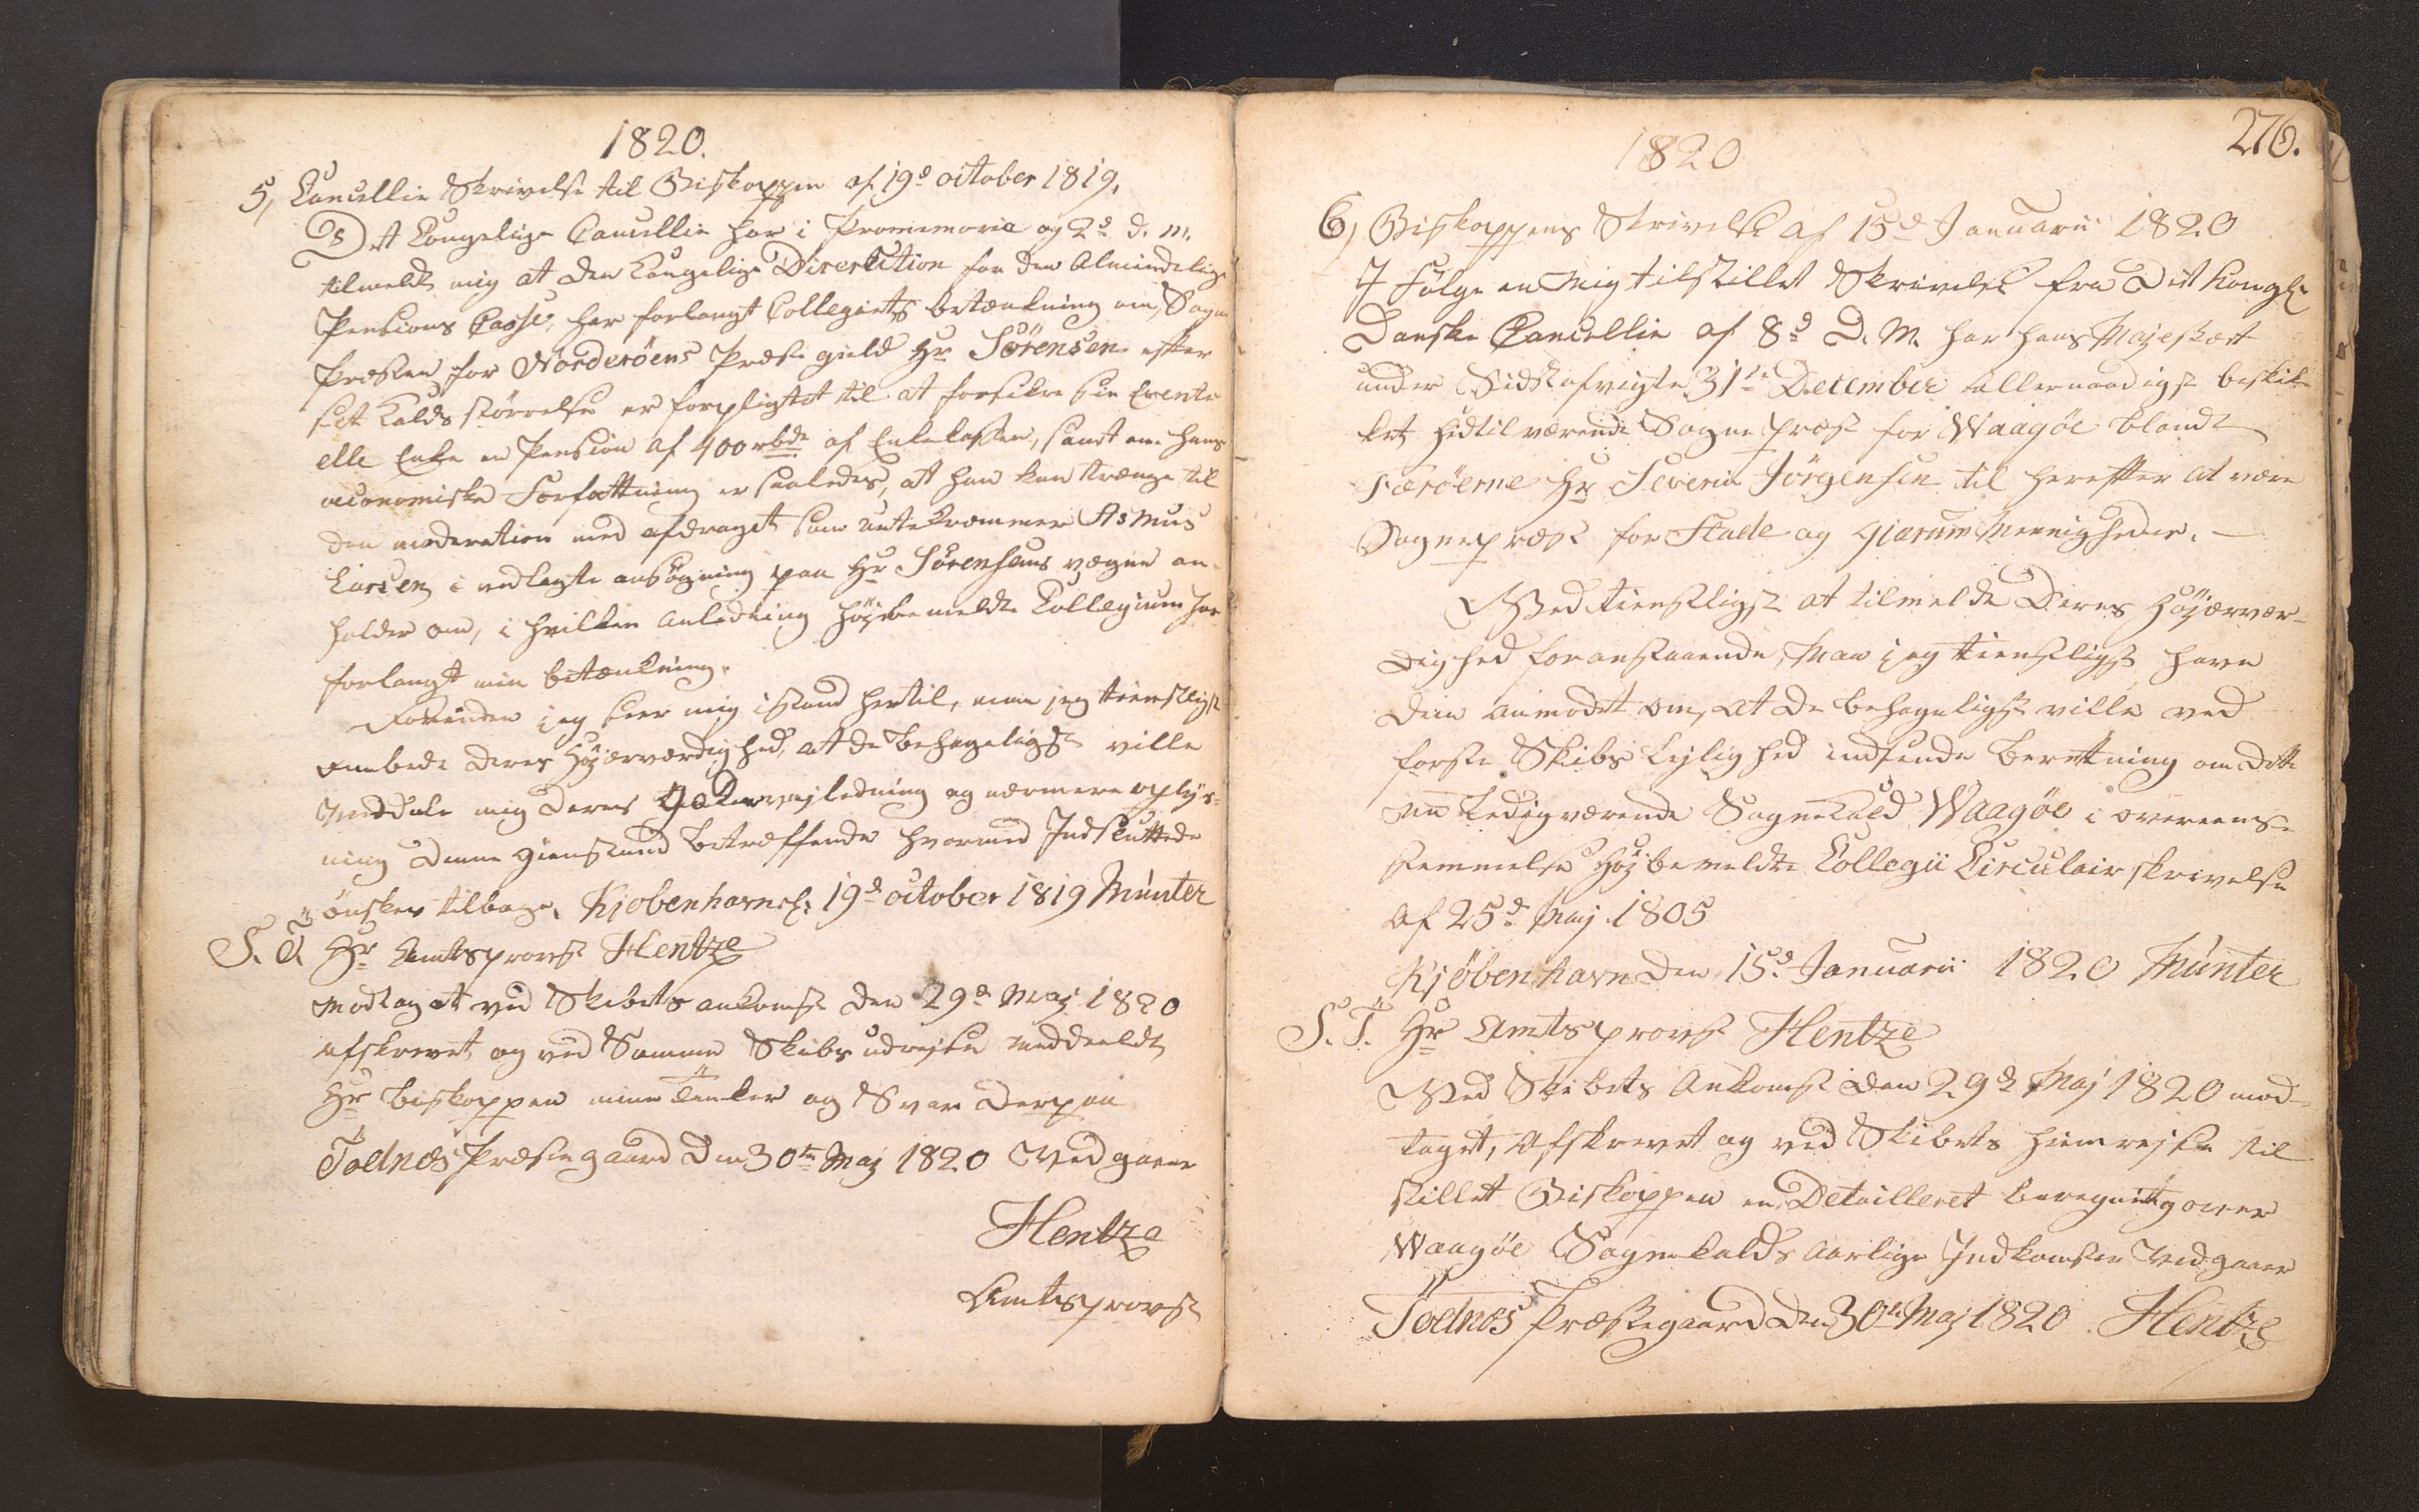 1820.
5, Cancellie Skrivelse til Biskoppen af 19d october 1819.
Det Kongelige Cancellie har i Promemoria og 2d d. m.
tilmeldt mig at den Kongelige Direcktion for den Almindelige
Pensions Casse, har forlangt Collegiets betænkning om, Sogne
Præsten for Norderöens Præstegield Hr Sörensen efter
sit Kalds störrelse er forpligtet til at forsikre sin Eventu
elle Enke en Pension af 400 rbdr af Enkekassen, samt om hans
oeconomiske Forfattning er saaledes, at han kan trænge til
den moderation med afdraget som Urtekræmmer Asmus
Larsen i vedlagte ansögning paa Hr Sörensens vegne an-
holder om, i hvilken anledning höjbemeldte Collegium har
forlangt min betænkning.
Forinden jeg seer mig istand hertil, maa jeg tienstligst
ombede Deres Höjærværdighed, at de behageligst ville
Meddele mig Deres vejledning og nærmere oplys-
ning denne gienstand betreffende hvormed Indsluttede
önskes tilbage. Kjobenhavn 19d october 1819 Münter
S. T. Hr Amtsprovst Hentze
Modtaget ved Skibets ankomst den 29d Maj 1820
afskrevet og ved Samme Skibs udrejse meddeeldt
Hr Biskoppen mine tanker og Svar derpaa
Todnæs Præstegaard den 30te Maj 1820 Vedgaaer
Hentze
Amtsprovst
276.
1820
6, Biskoppens Skrivelse af 15d Januarii 1820
I Fölge en Mig tilstillet Skrivelse fra Det Kongl.
Danske Cancellie af 8d D. M. har hans Majestæt
under Sidstafvigte 31te December allernaadigst beskik-
ket hidtilværende Sognepræst for Waagöe blandt
Færöerne Hr Severin Jörgensen til herefter at være
Sognepræst for Stade og Gjærum Menigheder. –
Ved tienstligst at tilmelde Deres Höjærvær-
dighed foranstaaende, Maa jeg tienstligst have
Dem anmodet om, at De behageligst ville ved
förste Skibs Lejlighed indsende Beretning om dette
nu Ledigværende Sognekald Waagöe i overeens-
stemmelse Höjbemeldte Collegii Circulairskrivelse
af 25d Maj 1805
Kjöbenhavn den 15d Januarii 1820 Münter
S. T. Hr Amtsprovst Hentze
Ved Skibets Ankomst den 29d Maj 1820 mod-
taget, Afskrevet og ved Skibets hiemrejse til
stillet Biskoppen en Detailleret beregning over
Waagöe Sognekalds aarlige Indkomster Vedgaaer
Todnæs Præstegaard den 30te Maj 1820 Hentze